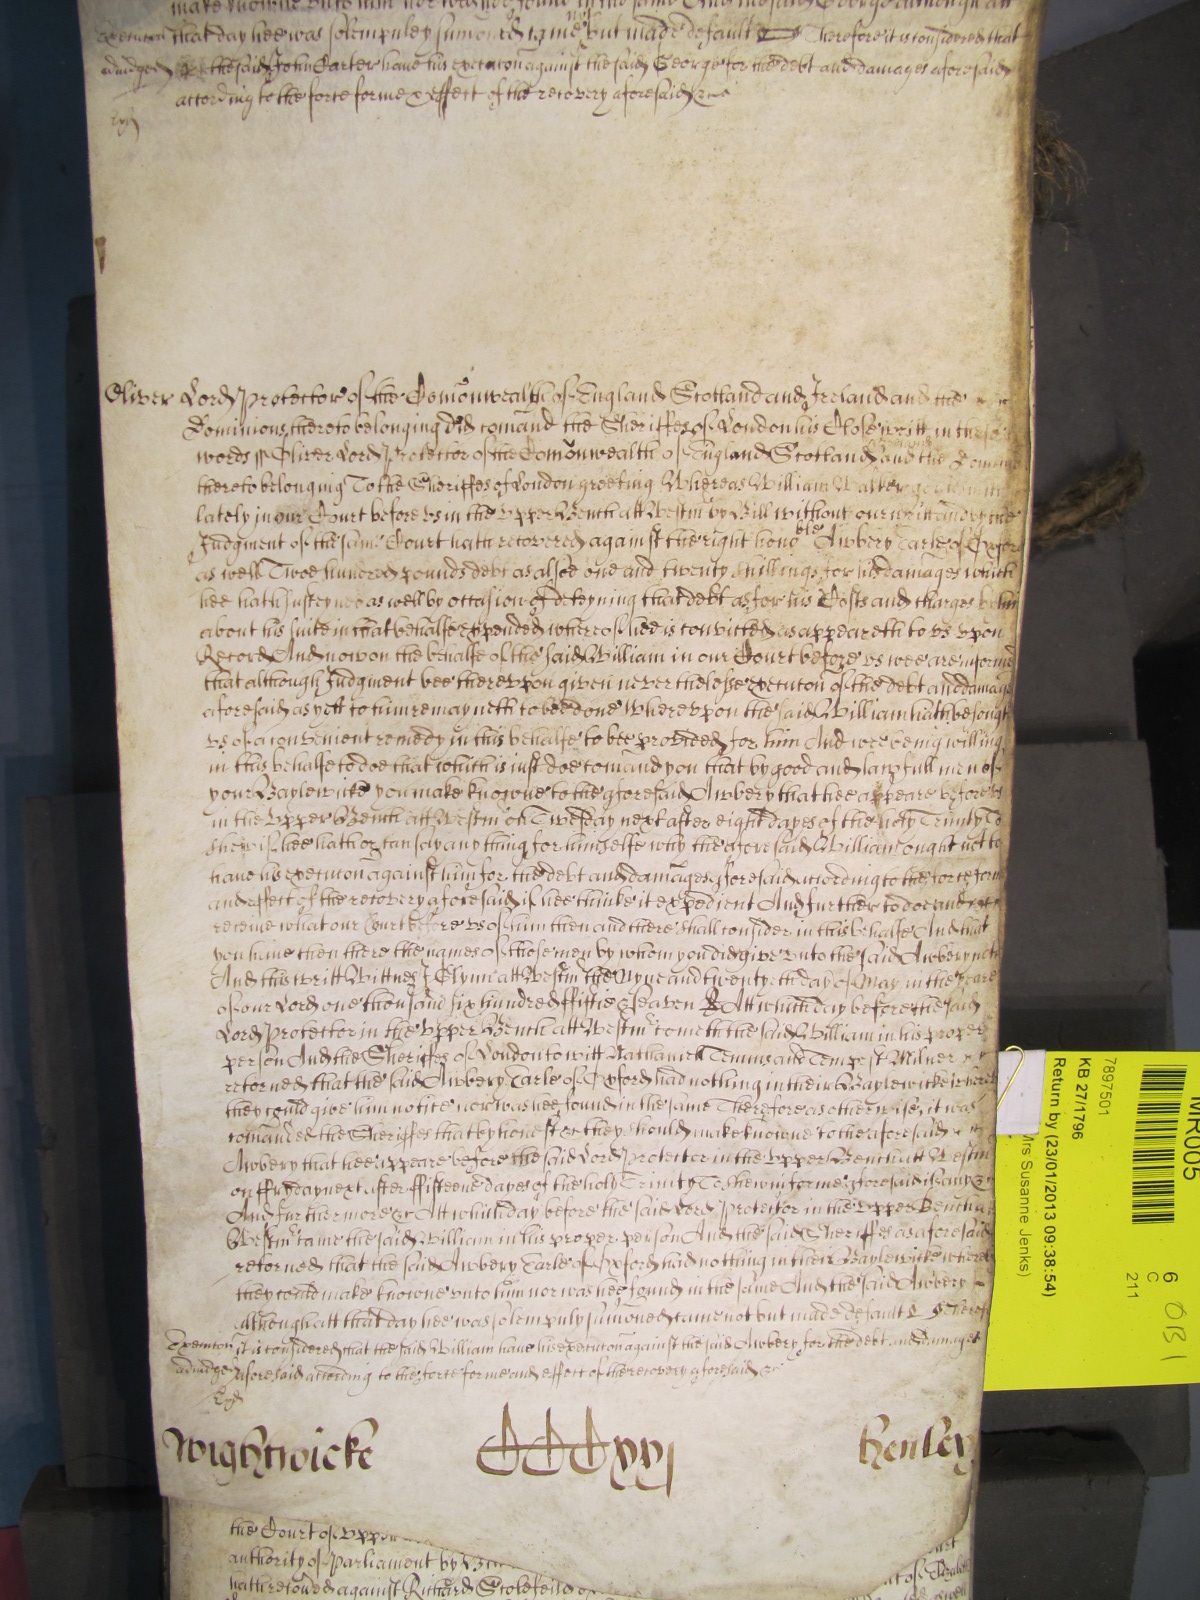 make knowne unto him nor was hee found in the same And the said George although att
Execution that day hee was solempnley sumoned came not but made default Therefore it is considered that
adiudged the said John Carter have his execution against the said George for the debt and damages aforesaid
according to the force forme & effect of the recovery aforesaid &c
Oliver Lord Protector of the Comonwealth of England Scotland and Ireland and the
Dominions thereto belonging did comand the Sheriffes of London his Close writt in these
words ss Oliver Lord Protector of the Comonwealth of England Scotland and the Domin
thereto belonging To the Sheriffes of London greeting Whereas William Walker
lately in our Court before us in the upper Bench att Westm by Bill without our writt and by the
Judgment of the same Court hath recovered against the right hono ble Awbery Earle of Oxford
as well Twoe hundred pounds debt as alsoe one and twenty shillings for his damages which
hee hath susteyned as well by occasion of deteyning that debt as for his Costs and charges by him
about his suite in that behalfe expended whereof hee is convicted as appeareth to us upon
Record And now on the behalfe of the said William in our Court before us wee are informed
that although Judgment bee thereupon given neverthelesse execution of the debt and damages
aforesaid as yett to him remayneth to bee done Whereupon the said William hath besought
us of a convenient remedy in this behalfe to bee provided for him And wee being willing
in this behalfe to doe that which is just doe comand you that by good and lawfull men of
your Baylewicke you make knowne to the aforesaid Awbery that hee appeare before us
in the upper Bench att Westm on Twesday next after eight dayes of the holy Trinity To
shew if hee hath or can say any thing for himselfe why the aforesaid William ought not to
have his execution against him for the debt and damages aforesaid according to the force forme
and effect of the recovery aforesaid if hee thinke it expedient And further to doe and
receive what our Court before us of him then and there shall consider in this behalfe And that
you have then there the names of those men by whom you did give unto the said Awbery notice
And this writt Wittnes J Glynn att Westm the Nyne and twentyeth day of May in the yeare
of our Lord one thousand six hundred ffiftie & seaven Att which day before the said
Lord Protector in the upper Bench att Westm cometh the said William in his proper
person And the Sheriffes of London to witt Nathaniell Temms and Tempest Milner
retorned that the said Awbery Earle of Oxford had nothing in their Baylewicke whereby
they could give him notice nor was hee found in the same Therefore as otherwise it was
comanded the Sheriffes that by honest &c they should make knowne to the aforesaid
Awbery that hee appeare before the said Lord Protector in the upper Bench att Westm
on ffryday next after ffifteene dayes of the holy Trinity To shew in forme aforesaid if any &c
And furthermore &c Att which day before the said Lord Protector in the upper Bench att
Westm came the said William in his proper person And the said Sheriffes as aforesaid
retorned that the said Awbery Earle of Oxford had nothing in their Baylewicke whereby
they could make knowne unto him nor was hee found in the same And the said Awbery
although att that day hee was solempnly sumoned came not but made default Therefore
Execution it is considered that the said William have his execution against the said Awbery for the debt and damages
adiudged aforesaid according to the force forme and effect of the recovery aforesaid &c
Wightwicke CCCxxj Henley
the Court of upper
authority of Parliament by
hath recovered against Richard
MR005
7897501
KB 27/1796
Return by (23/01/2013 09:38:54)
Mrs Susanne Jenks)
6
C
211
OB1